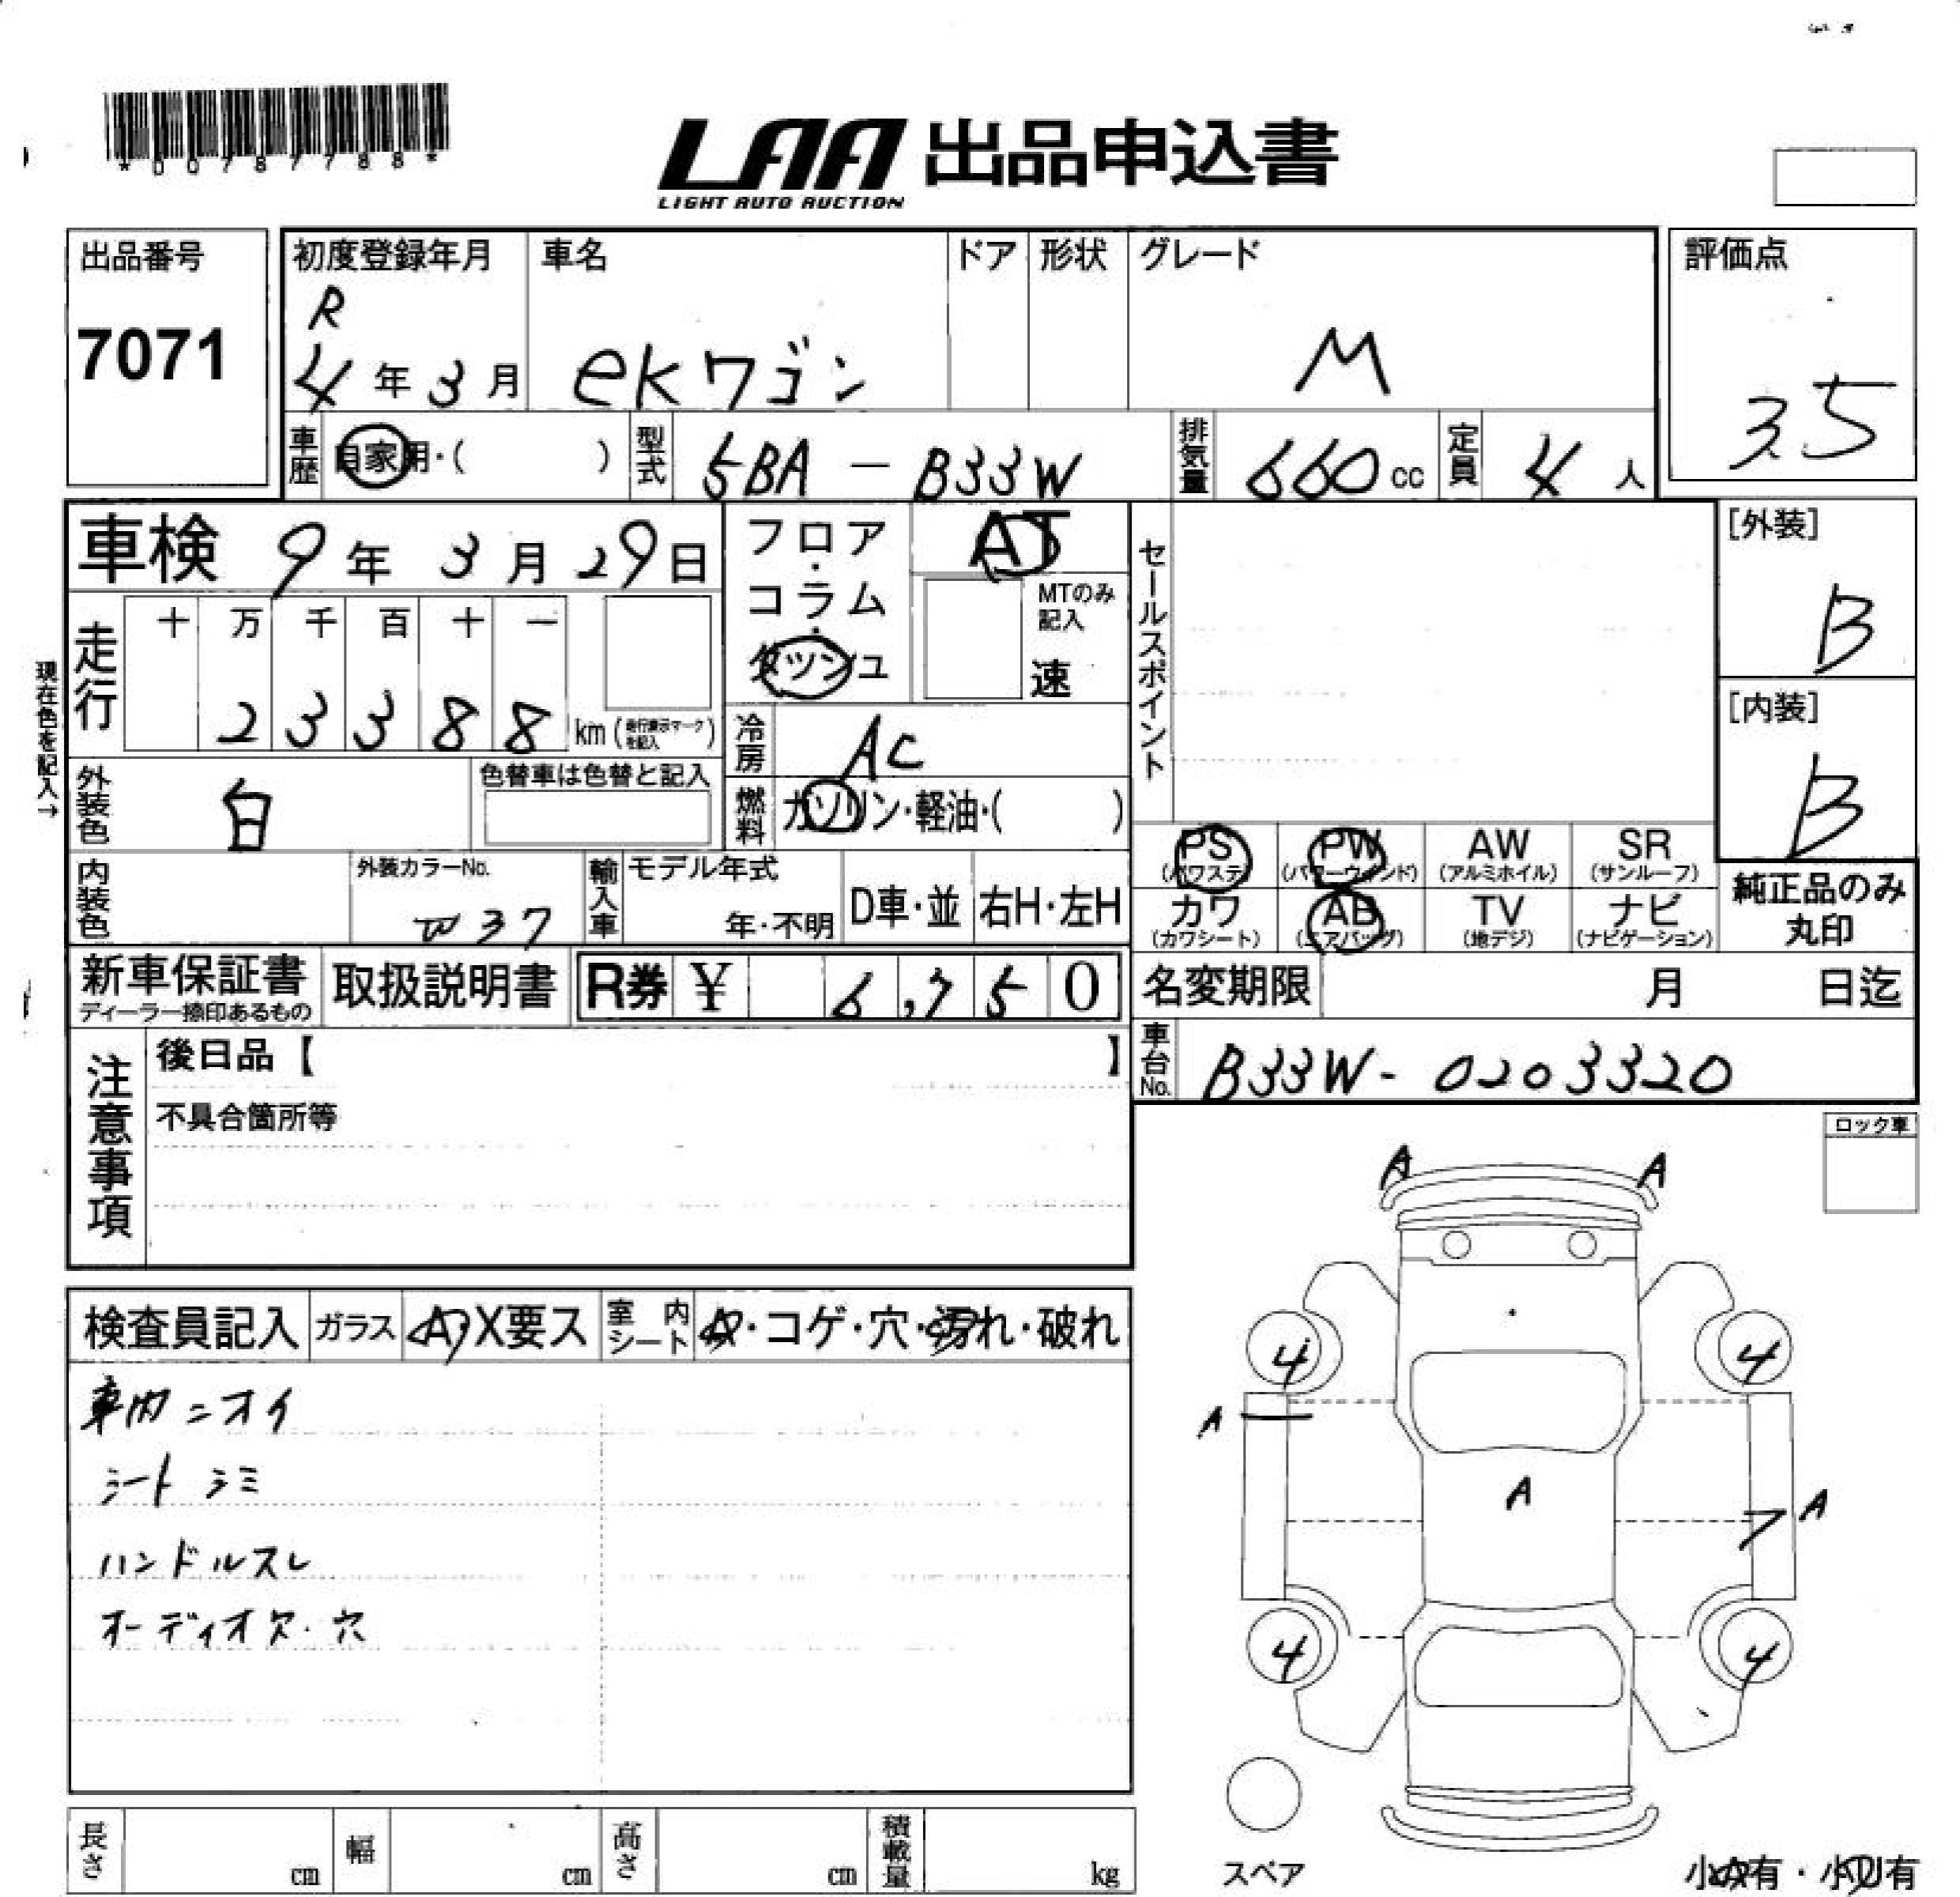 *00787788*
LAA 出品申込書
LIGHT AUTO AUCTION
出品番号
7071
初度登録年月
R
4年3月
車名
ekワゴン
ドア
形状
グレード
M
評価点
3.5
車歴
自家用・( )
型式
5BA - B33W
排気量
660cc
定員
4人
車検 9年 3月 29日
フロア・コラム・ダッシュ
AT
MTのみ記入
速
セールスポイント
[外装]
B
[内装]
B
走行
十 万 千 百 十 一
2 3 3 8 8 km (走行表示マークを記入)
現在色を記入→
冷房
AC
外装色
白
色替車は色替と記入
燃料
ガソリン・軽油・( )
PS (パワステ)
PW (パワーウインド)
AW (アルミホイル)
SR (サンルーフ)
カワ (カワシート)
AB (エアバッグ)
TV (地デジ)
ナビ (ナビゲーション)
純正品のみ丸印
内装色
外装カラーNo.
W37
輸入車
モデル年式
年・不明
D車・並
右H・左H
新車保証書
ディーラー捺印あるもの
取扱説明書
R券 ¥ 6,750
名変期限 月 日迄
車台No.
B33W-0203320
注意事項
後日品【 】
不具合箇所等
ロック車
A A
4 4
A
A
A
4 4
スペア
小A有・小凹有
検査員記入
ガラス
A・X要ス
室内シート
A・コゲ・穴・汚れ・破れ
車内ニオイ
シートシミ
ハンドルスレ
オーディオ欠・穴
長さ cm
幅 cm
高さ cm
積載量 kg